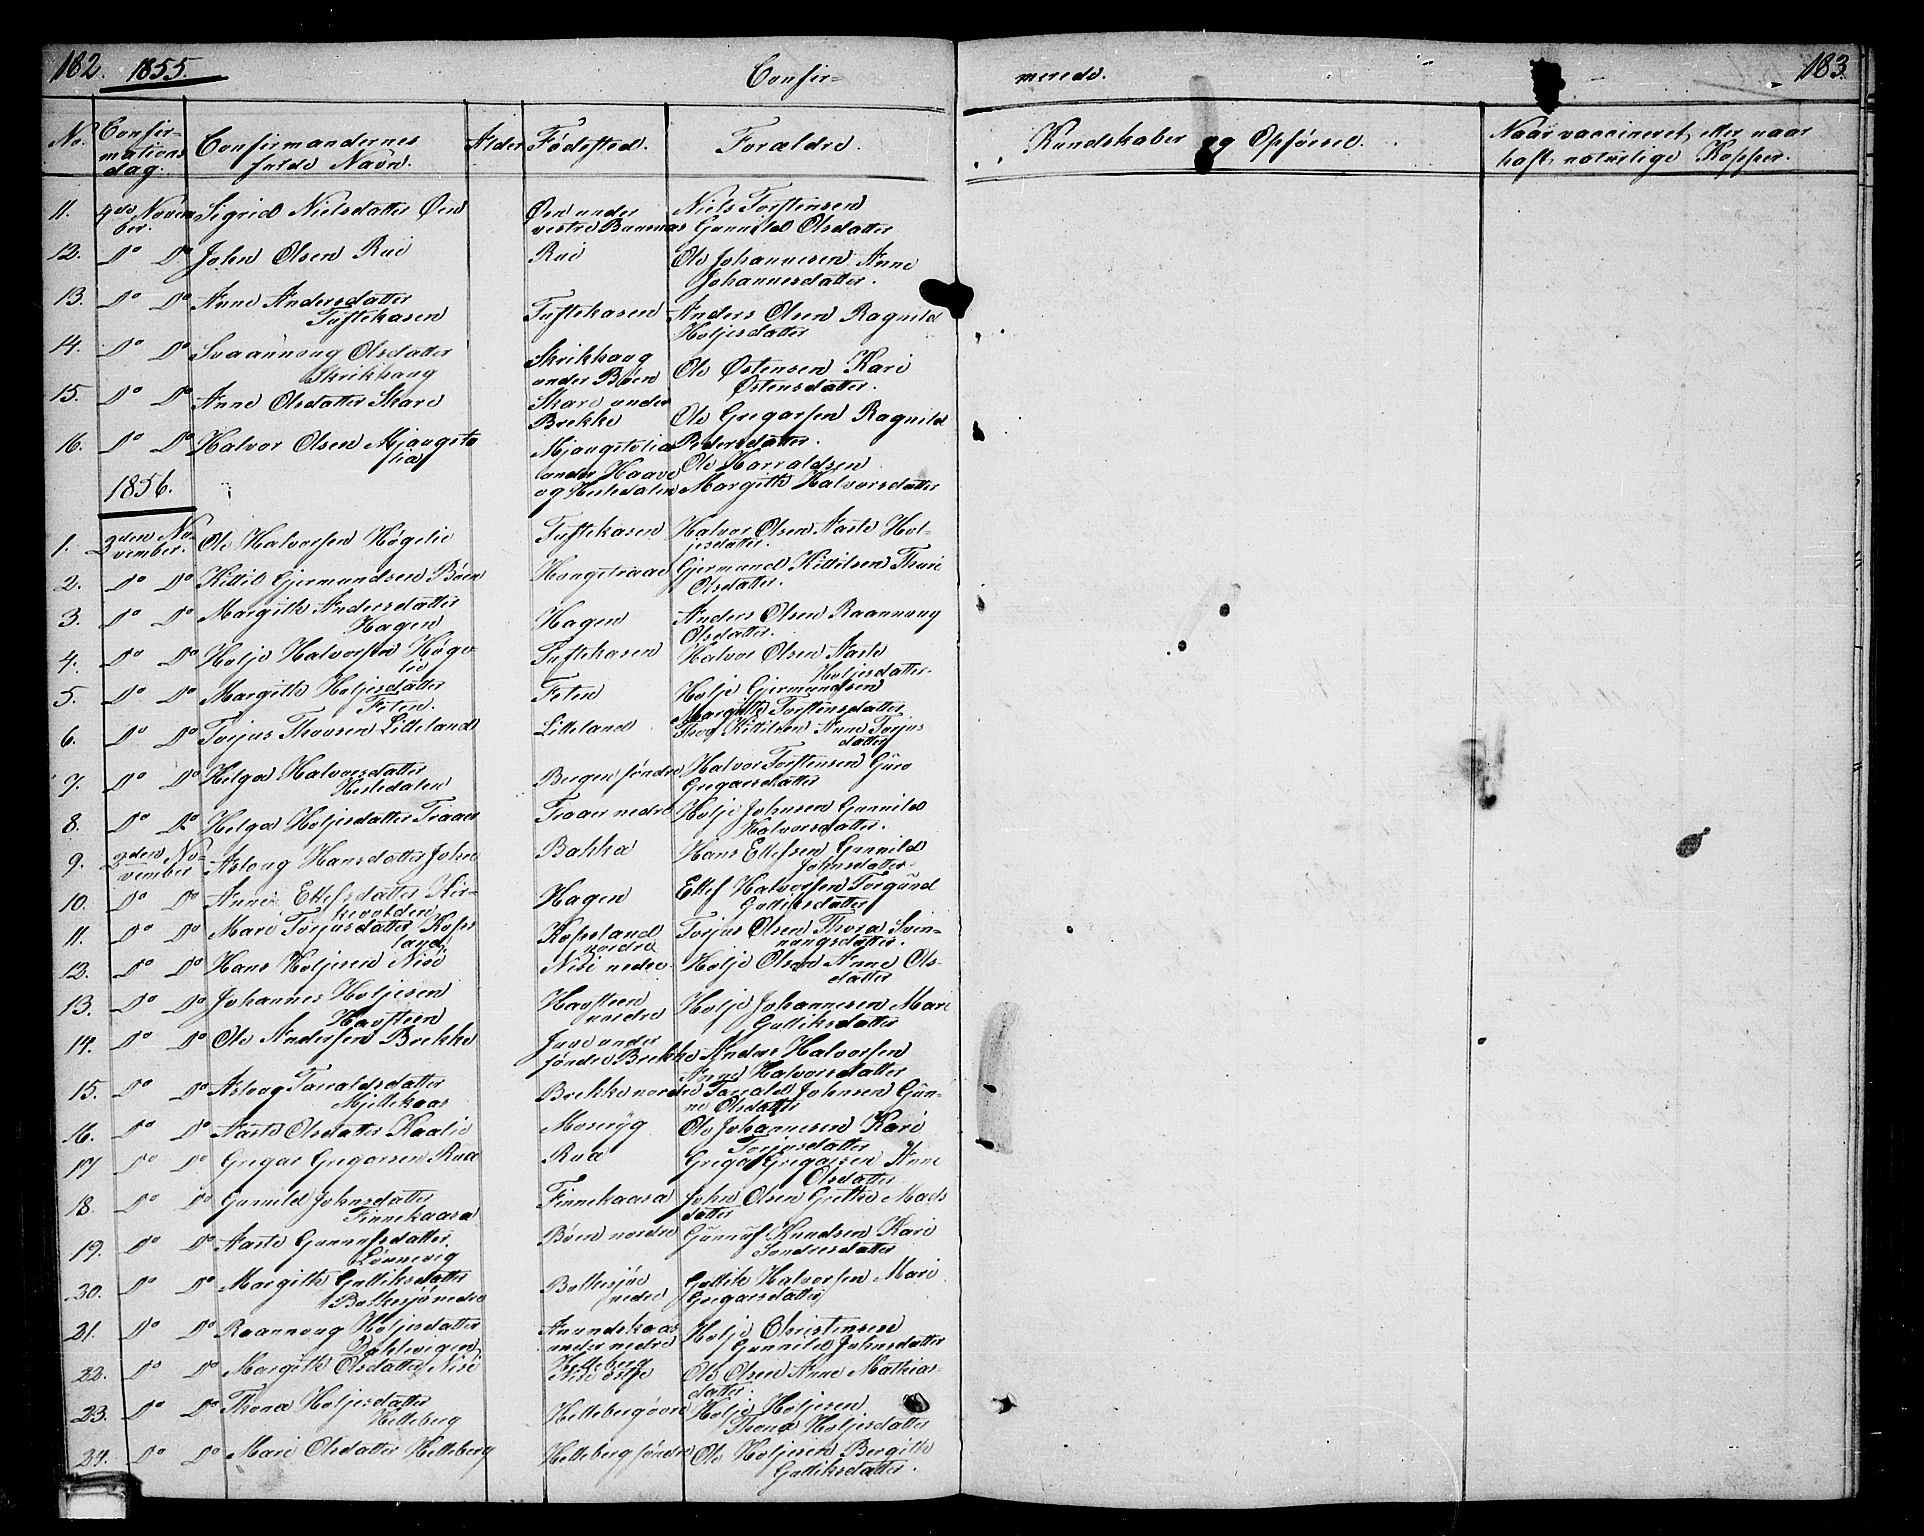 182. 1855. Confir- merede. 183.
No. Confir- mations dag. Confirmandernes fulde Navn. Alder Fødested. Forældre. Kundskaber og Opførsel. Naar vaccineret, eller naar haft naturlige Kopper.
11. 4de Novem ber. Sigrid Nielsdatter Øen Øen under vestre Niels Torstensen Gunnild Olsdatter
12. Do Do John Olsen Rui Rui Ole Johannesen Anne Johannesdatter.
13. Do Do Anne Andersdatter Tuftekasen Tuftekasen Anders Olsen Ragnild Holjesdatter
14. Do Do Svaannoug Olsdatter Skrikhaug Skrikhaug under Bøen Ole Østensen Kari Østensdatter.
15. Do Do Anne Olsdatter Skare Skare under Brekke Ole Gregarsen Ragnild Pedersdatter.
16. Do Do Halvor Olsen Mjaugsto lia Mjaugstolia under Haave og Hesledalen Ole Harraldsen Margith Halvorsdatter
1856.
1. 2den No- vember. Ole Halvorsen Høgelie Tuftekasen Halvor Olsen Aaste Hol- jesdatter.
2. Do Do Kittil Gjermundsen Bøen Haugstraae Gjermund Kittilsen Thuri Olsdatter.
3. Do Do Margith Andersdatter Hagen Hagen Anders Olsen Raannoug Olsdatter.
4. Do Do Holje Halvorsen Høge- lie Tuftekasen Halvor Olsen Aaste Holjesdatter.
5. Do Do Margith Holjesdatter Feten. Feten Holje Gjermundsen Margith Torstensdatter
6. Do Do Torjus Thovsen Litleland Litleland Thov Kittilsen Anne Torjus datter
7. Do Do Helga Halvorsdatter Hesledalen Bergen søndre Halvor Torstensen Guro Gregarsdatter
8. Do Do Helga Holjesdatter Traaer Traaer nedre Holje Johnsen Gunnild Halvorsdatter.
9. 2den No- vember Aslaug Hansdatter John Bakka Hans Ellefsen Gunnild Johnsdatter.
10. Do Do Anne Ellefsdatter Kir- kevolden Hagen Ellef Halvorsen Torgund Gulliksdatter
11. Do Do Mari Torjusdatter Kops land Kopsland nordre Torjus Olsen Thora Svin- nungsdatter.
12. Do Do Hans Holjesen Nisi Nisi nedre Holje Olsen Anne Ols- datter
13. Do Do Johannes Holjesen Havsteen Havsteen nordre Holje Johannesen Mari Gulliksdatter
14. Do Do Ole Andersen Brekke Juve under søndre Brekke Anders Halvorsen Anne Halvorsdatter
15. Do Do Aslaug Taraldsdatter Mjellekaas Brekke nordre Tarald Johnsen Gun- ne Olsdatter
16. Do Do Aaste Olsdatter Kaalie Moseryg Ole Johannesen Kari Torjusdatter
17 Do Do Gregar Gregarsen Rua Rua Gregar Gregarsen Anne Olsdatter
18. Do Do Gunnild Johnsdatter Finnekaasa Finnekaasa John Olsen Grethe Mads datter
19. Do Do Aaste Gunnufsdatter Lønnevig Bøen nordre Gunnuf Knudsen Kari Sondresdatter
20. Do Do Margith Gulliksdatter Bolkesjø nedre Bolkesjøe nedre Gullik Halvorsen Mari Gregarsdatter
21. Do Do Raannoug Holjesdatter Dahlevegen Anundskaas under nedre Helleberg Holje Christensen Gunnild Johnsdatter
22. Do Do Margith Olsdatter Nisi Nisi østre Ole Olsen Anne Mathias- datter
23. Do Do Thona Holjesdatter Helleberg Helleberg øvre Holje Holjesen Thona Holjesdatter
24. Do Do Mari Olsdatter Helleberg Helleberg søndre Ole Holjesen Bergith Gulliksdatter.